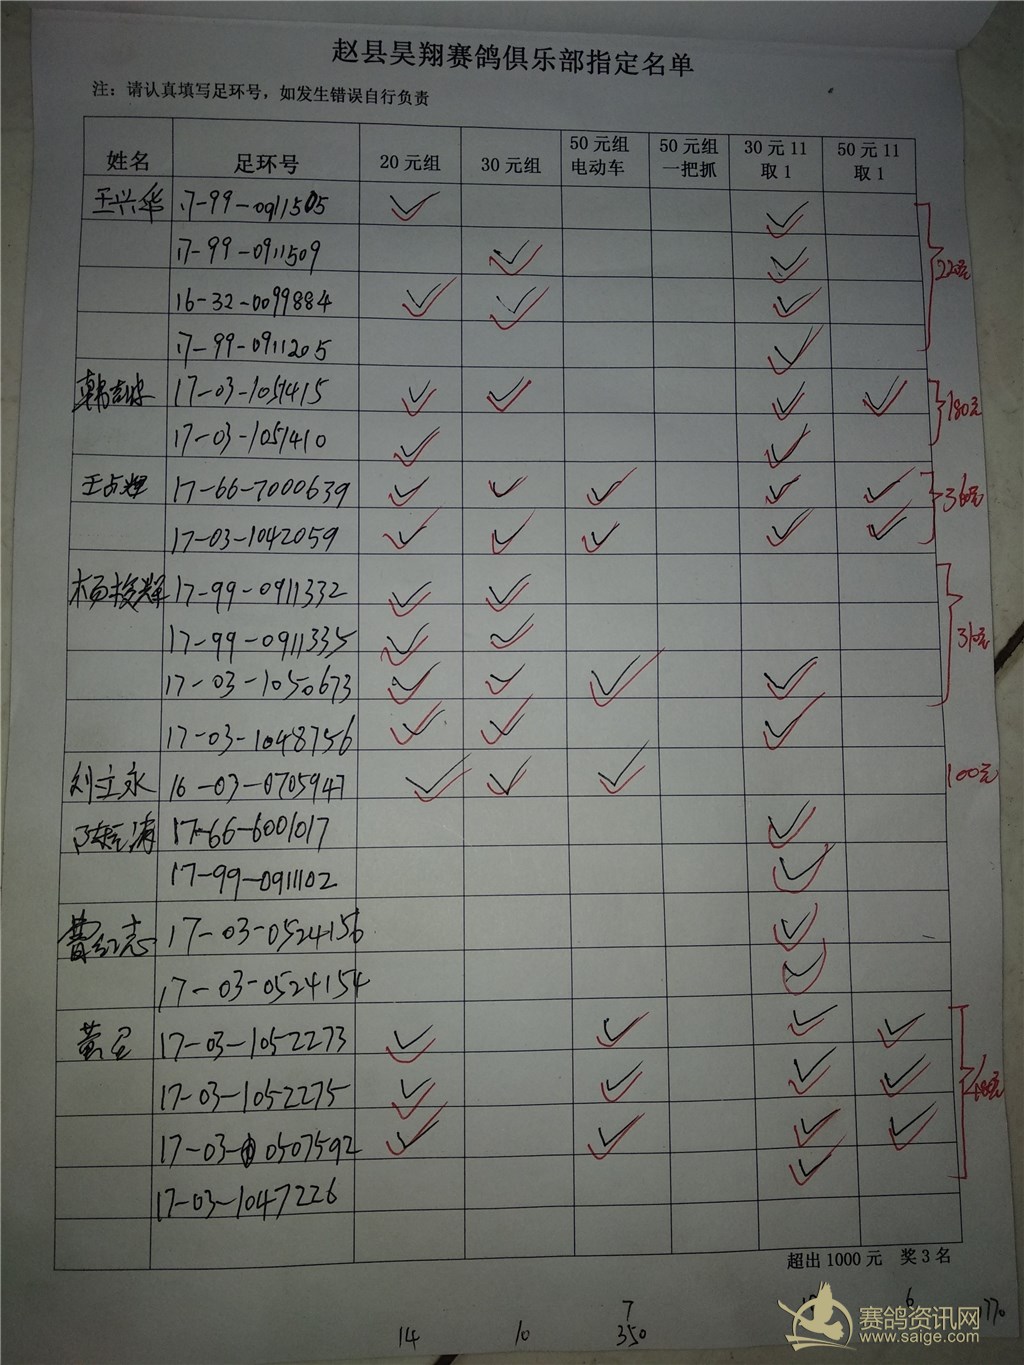 赵县昊翔赛鸽俱乐部指定名单
注：请认真填写足环号，如发生错误自行负责
姓名 足环号 20元组 30元组 50元组电动车 50元组一把抓 30元11取1 50元11取1
王兴华 17-99-0911505 ✓ ✓
17-99-0911509 ✓ ✓
16-32-0099884 ✓ ✓ ✓
17-99-0911205 ✓
220元
17-03-1051415 ✓ ✓ ✓ ✓
17-03-1051410 ✓ ✓
180元
王占辉 17-66-7000639 ✓ ✓ ✓ ✓ ✓
17-03-1042059 ✓ ✓ ✓ ✓ ✓
360元
杨俊辉 17-99-0911332 ✓ ✓
17-99-0911335 ✓ ✓
17-03-1050673 ✓ ✓ ✓ ✓
17-03-1048756 ✓ ✓ ✓
310元
刘立永 16-03-0705947 ✓ ✓ ✓
100元
17-66-6001017 ✓
17-99-0911102 ✓
曹红志 17-03-0524156 ✓
17-03-0524154 ✓
黄 17-03-1052273 ✓ ✓ ✓ ✓
17-03-1052275 ✓ ✓ ✓ ✓
17-03-0507592 ✓ ✓ ✓ ✓
17-03-1047226 ✓
超出1000元 奖3名
14 10 7 6
350
赛鸽资讯网
www.saige.com